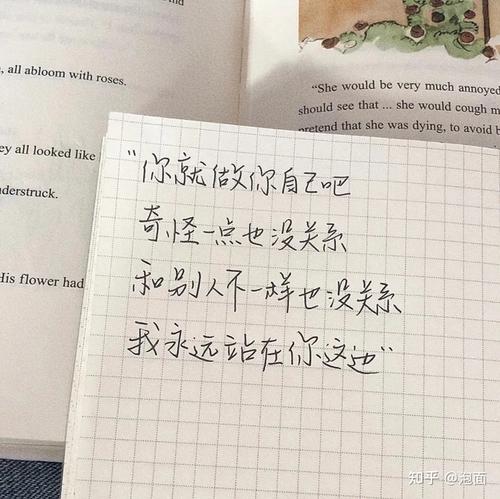 , all abloom with roses.
ey all looked like
nderstruck.
His flower had
“She would be very much annoyed
should see that ... she would cough m
pretend that she was dying, to avoid b
“你就做你自己吧
奇怪一点也没关系
和别人不一样也没关系
我永远站在你这边”
知乎 @泡面